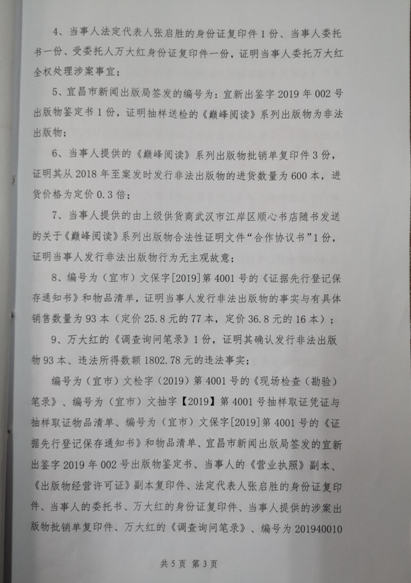 4、当事人法定代表人张启胜的身份证复印件1份、当事人委托
书一份、受委托人万大红身份证复印件一份，证明当事人委托万大红
全权处理涉案事宜；
5、宜昌市新闻出版局签发的编号为：宜新出鉴字2019年002号
出版物鉴定书1份，证明抽样送检的《巅峰阅读》系列出版物为非法
出版物；
6、当事人提供的《巅峰阅读》系列出版物批销单复印件3份，
证明其从2018年至案发时发行非法出版物的进货数量为600本，进
货价格为定价0.3倍；
7、当事人提供的由上级供货商武汉市江岸区顺心书店随书发送
的关于《巅峰阅读》系列出版物合法性证明文件“合作协议书”1份，
证明当事人发行非法出版物行为无主观故意；
8、编号为（宜市）文保字[2019]第4001号的《证据先行登记保
存通知书》和物品清单，证明当事人发行非法出版物的事实与有具体
销售数量为93本（定价25.8元的77本，定价36.8元的16本）；
9、万大红的《调查询问笔录》1份，证明其确认发行非法出版
物93本、违法所得数额1802.78元的违法事实；
编号为（宜市）文检字（2019）第4001号的《现场检查（勘验）
笔录》、编号为（宜市）文抽字【2019】第4001号抽样取证凭证与
抽样取证物品清单、编号为（宜市）文保字[2019]第4001号的《证
据先行登记保存通知书》和物品清单、宜昌市新闻出版局签发的宜新
出鉴字2019年002号出版物鉴定书、当事人的《营业执照》副本、
《出版物经营许可证》副本复印件、法定代表人张启胜的身份证复印
件、当事人的委托书、万大红的身份证复印件、当事人提供的涉案出
版物批销单复印件、万大红的《调查询问笔录》、编号为201940010
共5页 第3页